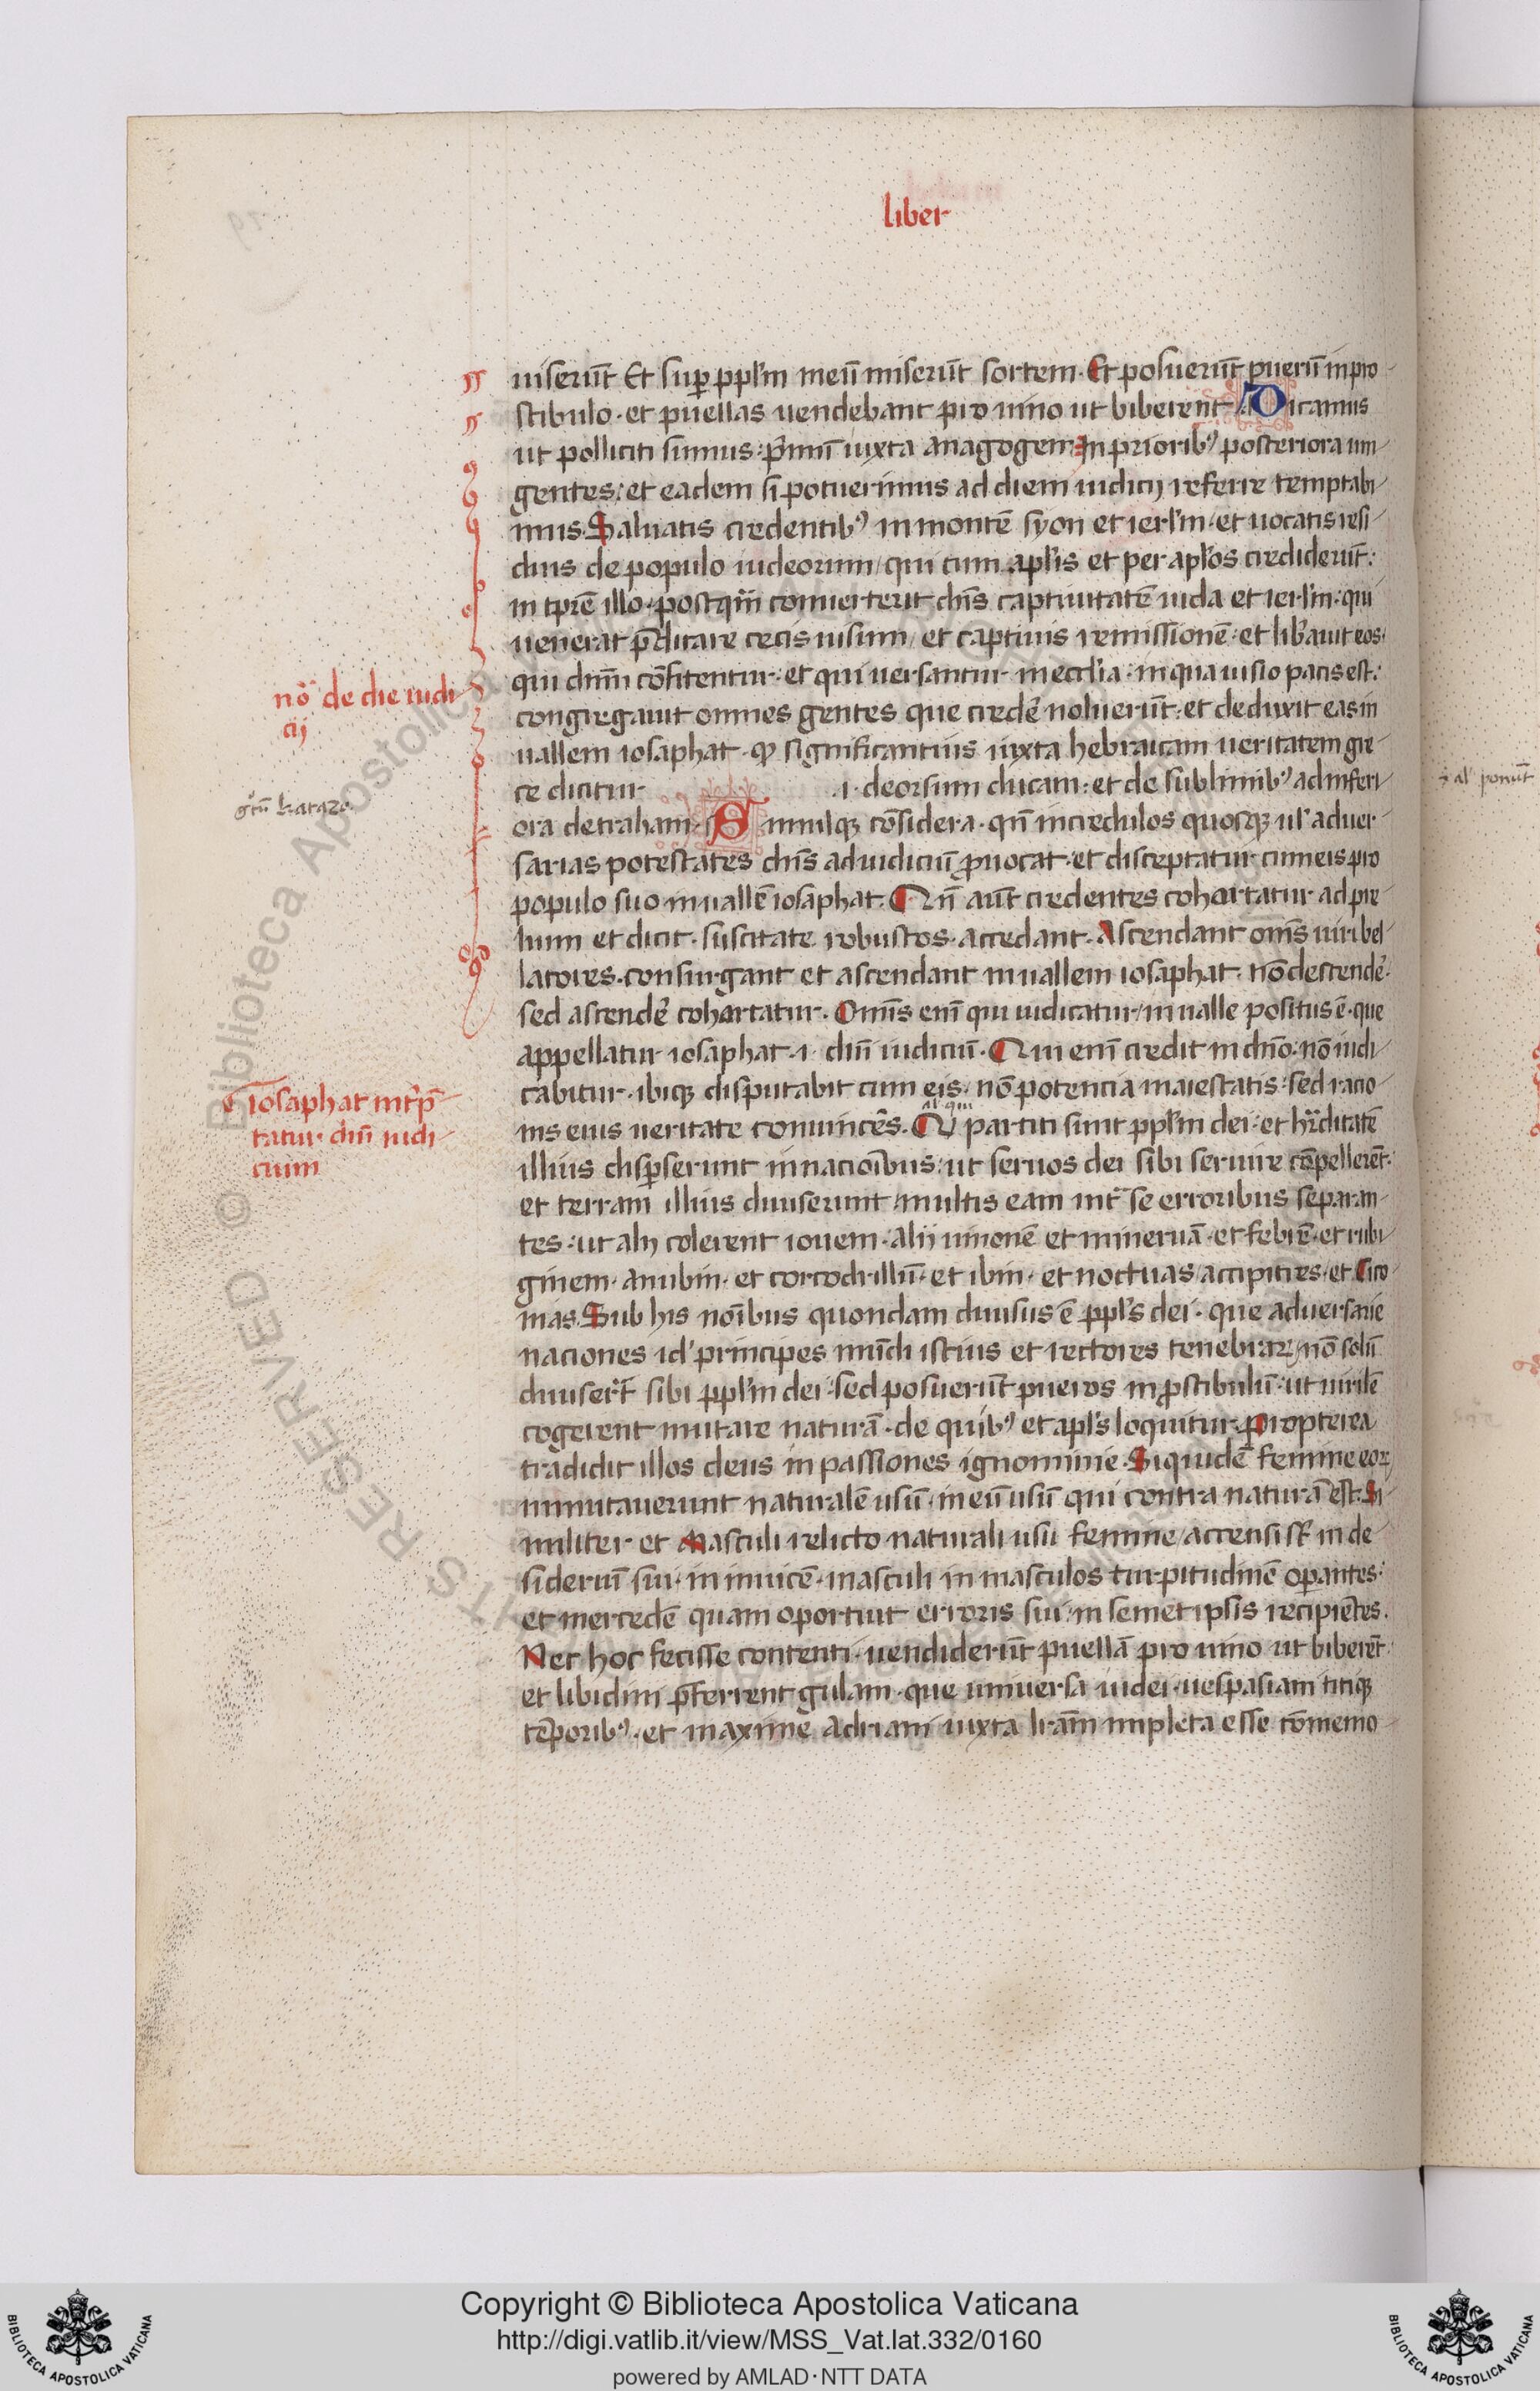 liber
uiserūt Et suꝑ ppl'm meū miserūt sortem. Et posuerūt puerū in pro-
stibulo. et puellas uendebant pro uino ut biberent. Dicamus
ut polliciti sumus: p̄mū iuxta anagogem. In priorib⁹ posteriora iun-
gentes: et eadem si potuerimus ad diem iudicij referre temptabi-
mus. Saluatis credentib⁹ in montē syon et ierl'm. et uocatis resi-
duis de populo iudeorum / qui cum apl'is et per apl'os crediderūt:
in tp̄re illo. postq̄m conuerterit dn̄s captiuitatē iuda et ierl'm. qui
uenerat p̄dicare cecis uisum / et captiuis remissionē. et lib'auit eos.
qui dn̄m cōfitentur. et qui uersantur in eccl'ia. in qua uisio pacis est:
congregauit omnes gentes que creder' noluerūt: et deduxit eas in
uallem iosaphat. qd significantius iuxta hebraicam ueritatem gre-
ce dicitur .i. deorsum ducam: et de sublimib⁹ ad inferi-
ora detraham. Simulqꝫ cōsidera. qn̄ incredulos quosqꝫ ul' aduer-
sarias potestates dn̄s ad iudiciū ꝓuocat. et disceptatur cum eis pro
populo suo in uallē iosaphat. Qn̄ aūt credentes cohortatur ad pre-
lium et dicit. suscitate robustos. accedant. Ascendant om̄s uiri bel-
latores. consurgant et ascendant in uallem iosaphat. nō descender'.
sed ascender' cohortatur. Om̄is enī qui iudicatur / in ualle positus ē. que
appellatur iosaphat .i. dn̄i iudiciū. Qui enī credit in dn̄o: nō iudi-
cabitur. ibiqꝫ disputabit cum eis. nō potencia maiestatis: sed racio-
al' qui
nis eius ueritate conuincēs. Qd partiti sunt ppl'm dei: et h'editatē
illius disꝑserunt in nacioībus: ut seruos dei sibi seruire cōpellerēt.
et terram illius diuiserunt / multis eam int' se erroribus separan-
tes: ut alij colerent iouem. alij iunonē et mineruā. et febrē. et rubi-
ginem. anubin. et corcodrillū. et ibin. et noctuas / accipitres. et Cico-
nias. Sub his noībus quondam diuisus ē ppl's dei. que aduersarie
naciones id' principes mūdi istius et rectores tenebraꝝ / nō solū
diuiser̄t sibi ppl'm dei: sed posuerūt pueros in ꝓstibulū. ut uirilē
cogerent mutare naturā. de quib⁹ et apl's loquitur. Propterea
tradidit illos deus in passiones ignominie. Siquidē femine eoꝝ
inmutauerunt naturalē usū. in eū usū qui contra naturā est. Si-
militer et Masculi relicto naturali usu femine / accensi sr̄ in de-
sideriū sui. in inuicē. masculi in masculos turpitudinē oꝑantes:
et mercedē quam oportuit erroris sui. in semet ipsis recipiētes.
Nec hoc fecisse contenti. uendiderūt puellā pro uino ut biberēt.
et libidini p̄ferrent gulam. que uniuersa iudei. uespasiani titiqꝫ
tēporib⁹. et maxime Adriani iuxta lr̄am impleta esse cōmemo-
nō de die iudi-
cij
gr̄tū kataxo.
iosaphat int'p̄-
tatur. dn̄i iudi-
cium
al' ponūt
Copyright © Biblioteca Apostolica Vaticana
http://digi.vatlib.it/view/MSS_Vat.lat.332/0160
powered by AMLAD·NTT DATA
BIBLIOTECA APOSTOLICA VATICANA
BIBLIOTECA APOSTOLICA VATICANA